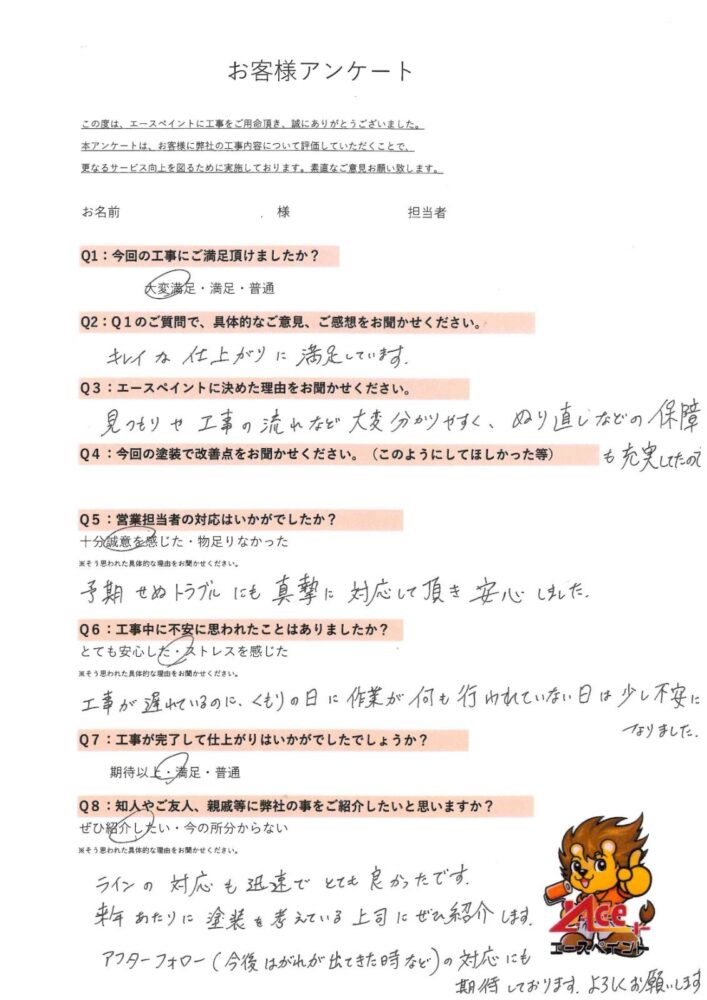 お客様アンケート
この度は、エースペイントに工事をご用命頂き、誠にありがとうございました。
本アンケートは、お客様に弊社の工事内容について評価していただくことで、
更なるサービス向上を図るために実施しております。素直なご意見お願い致します。
お名前 様 担当者
Q1：今回の工事にご満足頂けましたか？
大変満足・満足・普通
Q2：Q1のご質問で、具体的なご意見、ご感想をお聞かせください。
キレイな仕上がりに満足しています。
Q3：エースペイントに決めた理由をお聞かせください。
見つもりや工事の流れなど大変分かりやすく、ぬり直しなどの保障
も充実してたので
Q4：今回の塗装で改善点をお聞かせください。（このようにしてほしかった等）
Q5：営業担当者の対応はいかがでしたか？
十分誠意を感じた・物足りなかった
※そう思われた具体的な理由をお聞かせください。
予期せぬトラブルにも真摯に対応して頂き安心しました。
Q6：工事中に不安に思われたことはありましたか？
とても安心した・ストレスを感じた
※そう思われた具体的な理由をお聞かせください。
工事が遅れているのに、くもりの日に作業が何も行われていない日は少し不安に
なりました。
Q7：工事が完了して仕上がりはいかがでしたでしょうか？
期待以上・満足・普通
Q8：知人やご友人、親戚等に弊社の事をご紹介したいと思いますか？
ぜひ紹介したい・今の所分からない
※そう思われた具体的な理由をお聞かせください。
ラインの対応も迅速でとても良かったです。
来年あたりに塗装を考えている上司にぜひ紹介します。
アフターフォロー（今後はがれが出てきた時など）の対応にも
期待しております。よろしくお願いします
Ace
エースペイント